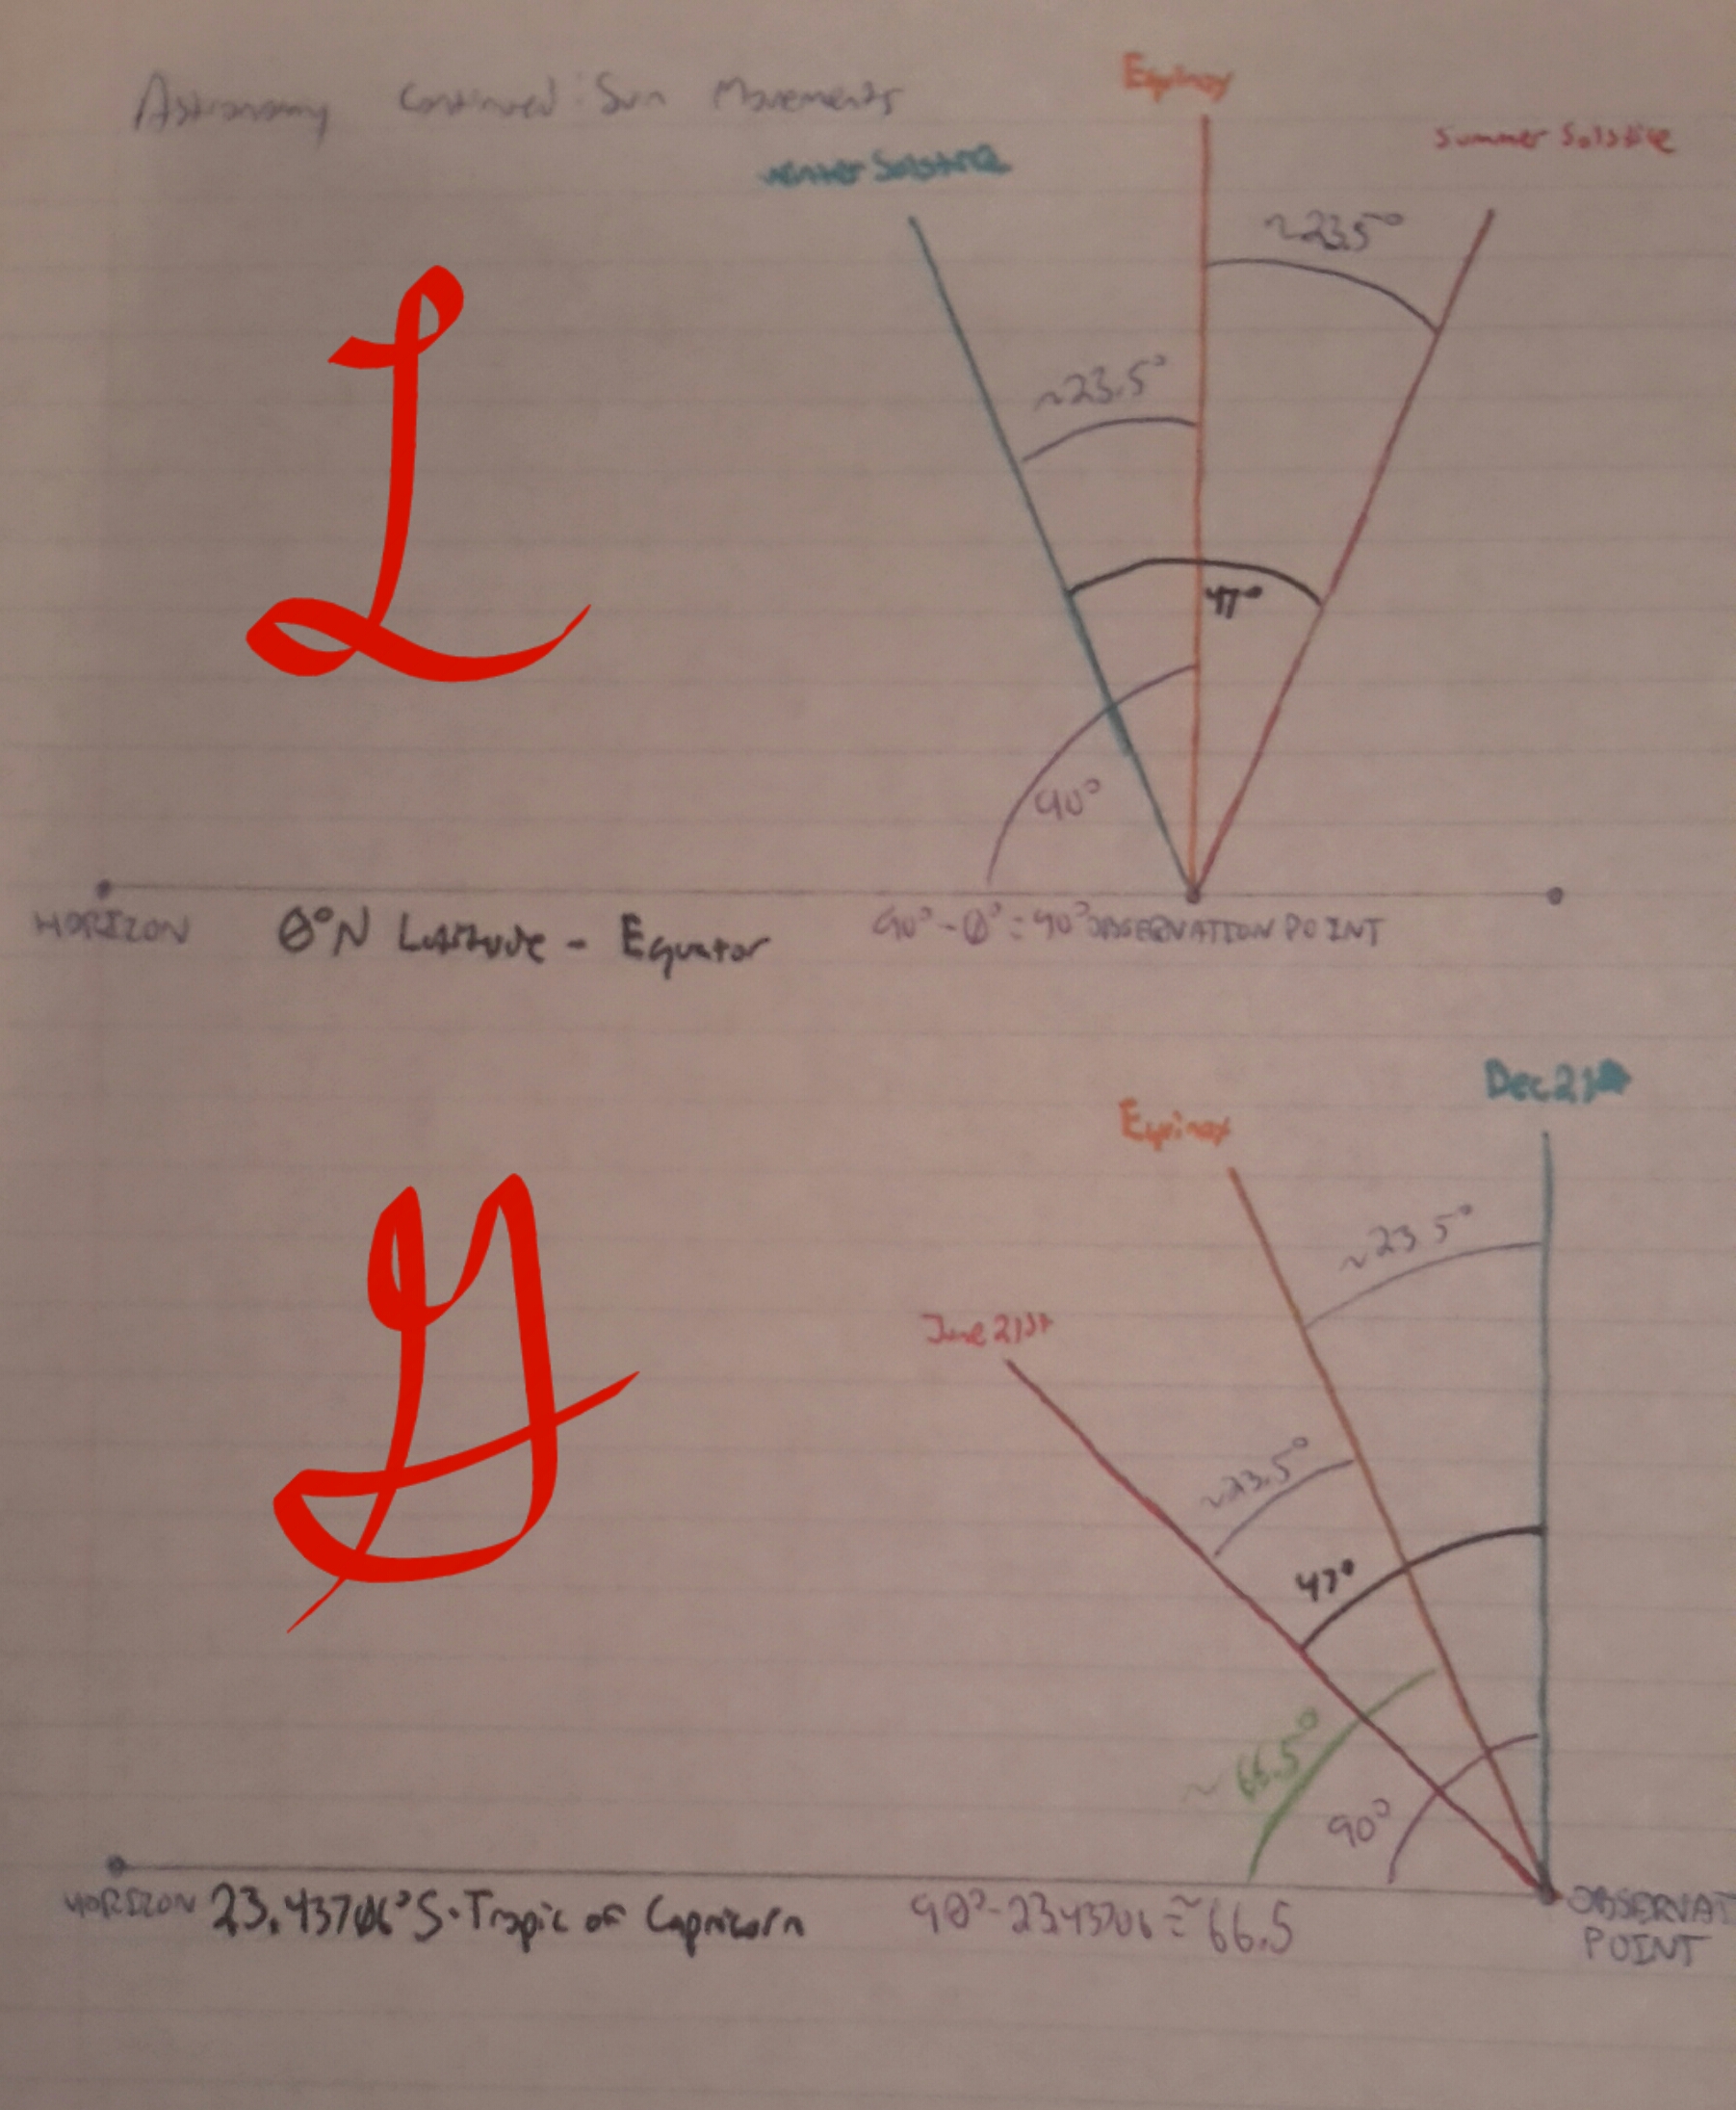 Astronomy Continued: Sun Movements
Equinox
Winter Solstice
Summer Solstice
~23.5°
~23.5°
47°
90°
L
HORIZON
0°N Latitude - Equator
90°-0°=90°
OBSERVATION POINT
Dec 21st
Equinox
~23.5°
June 21st
~23.5°
47°
~66.5°
90°
G
HORIZON
23.43706°S·Tropic of Capricorn
90°-23.43706≅66.5
OBSERVAT
POINT